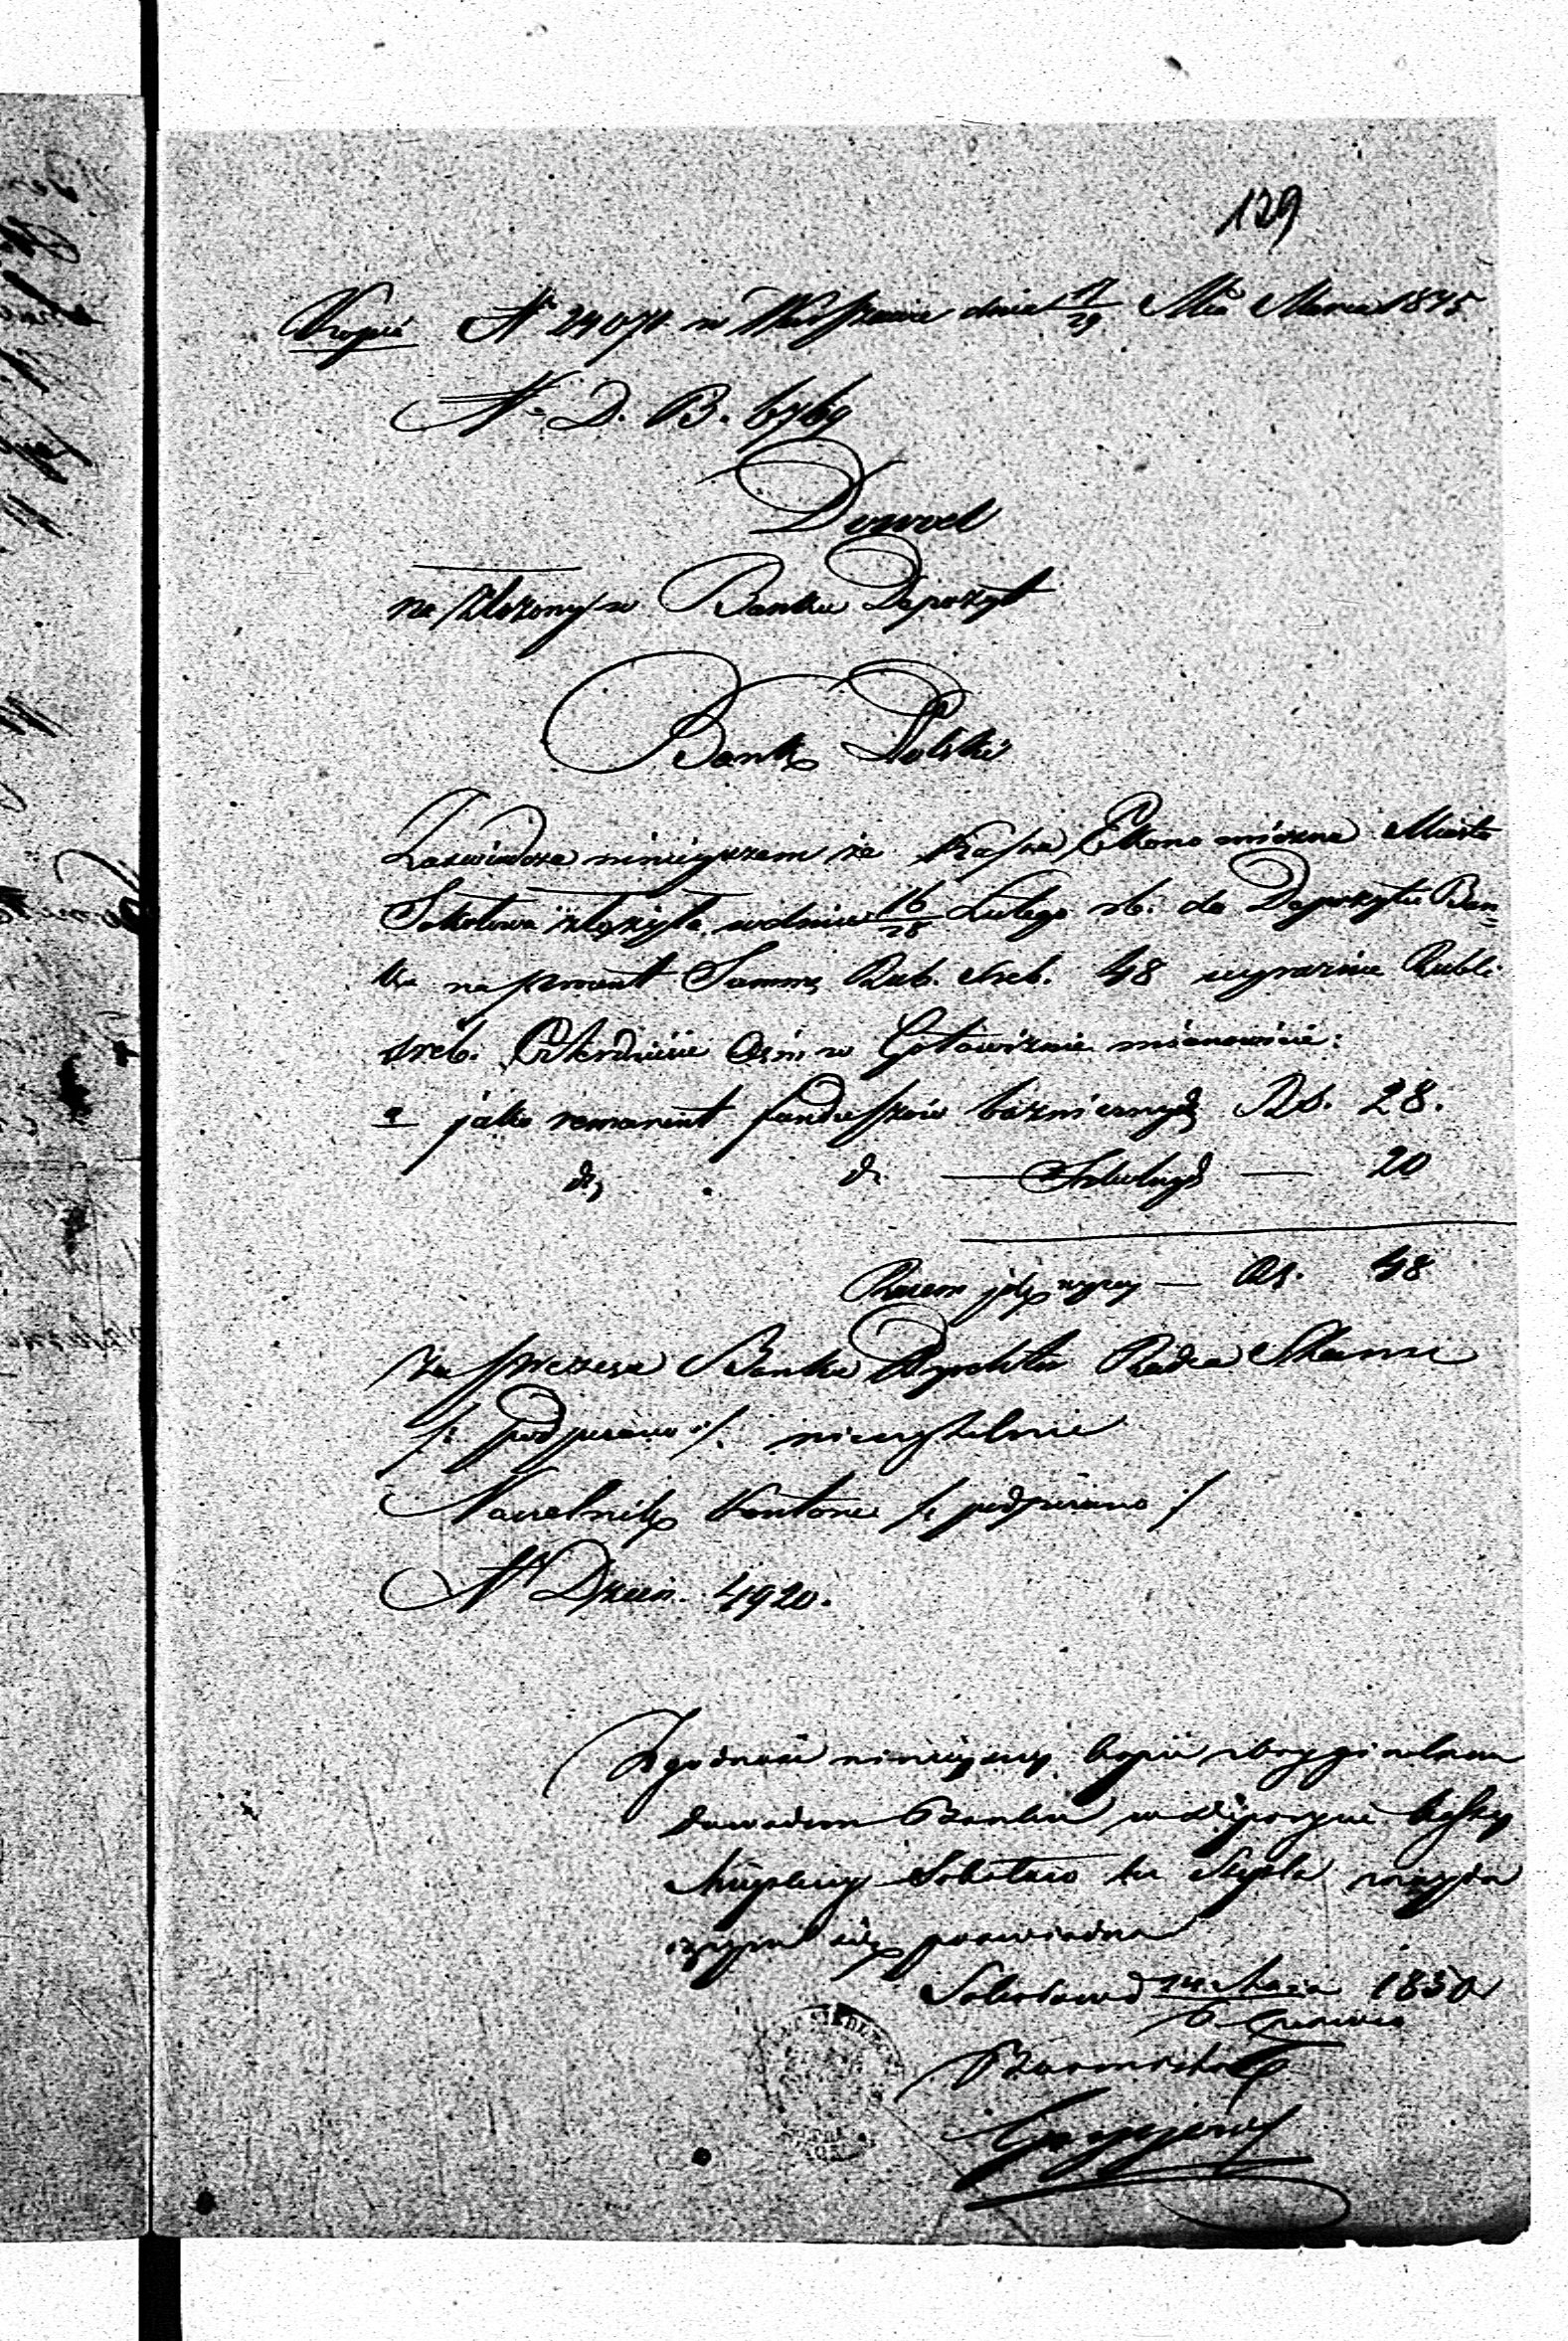 129
Kopia № 24074 w Warszawie dnia 17/29 Mca Marca 1845
№ D. B. 6769
Dowod
na złożony w Banku Depozyt
Bank Polski
Zaświadcza niniejszem że Kassa Ekonomiczna Miasta
Sokołowa złożyła w dniu 16/28 Lutego rb. do Depozytu Ban=
ku na procent Summę Rub. Sreb. 48 wyraźnie Rubli
sreb. Czterdzieści Osm w Gotowiźnie mianowicie:
a jako remanent funduszów bóżniczych Rs. 28.
do do — Szkolnych — 20
Razem jak wyżej — Rs. 48
za Prezesa Banku Radca Stanu
/: podpisano :/ nieczytelnie
Naczelnik Kontoru /: podpisano :/
№ Dzien. 4920.
Zgodność niniejszej kopii z oryginalnym
dowodem Banku w depozycie Kassy
Miejskiej Sokołów
się poswiadcza
Sokołowie 1850
Burmistrz